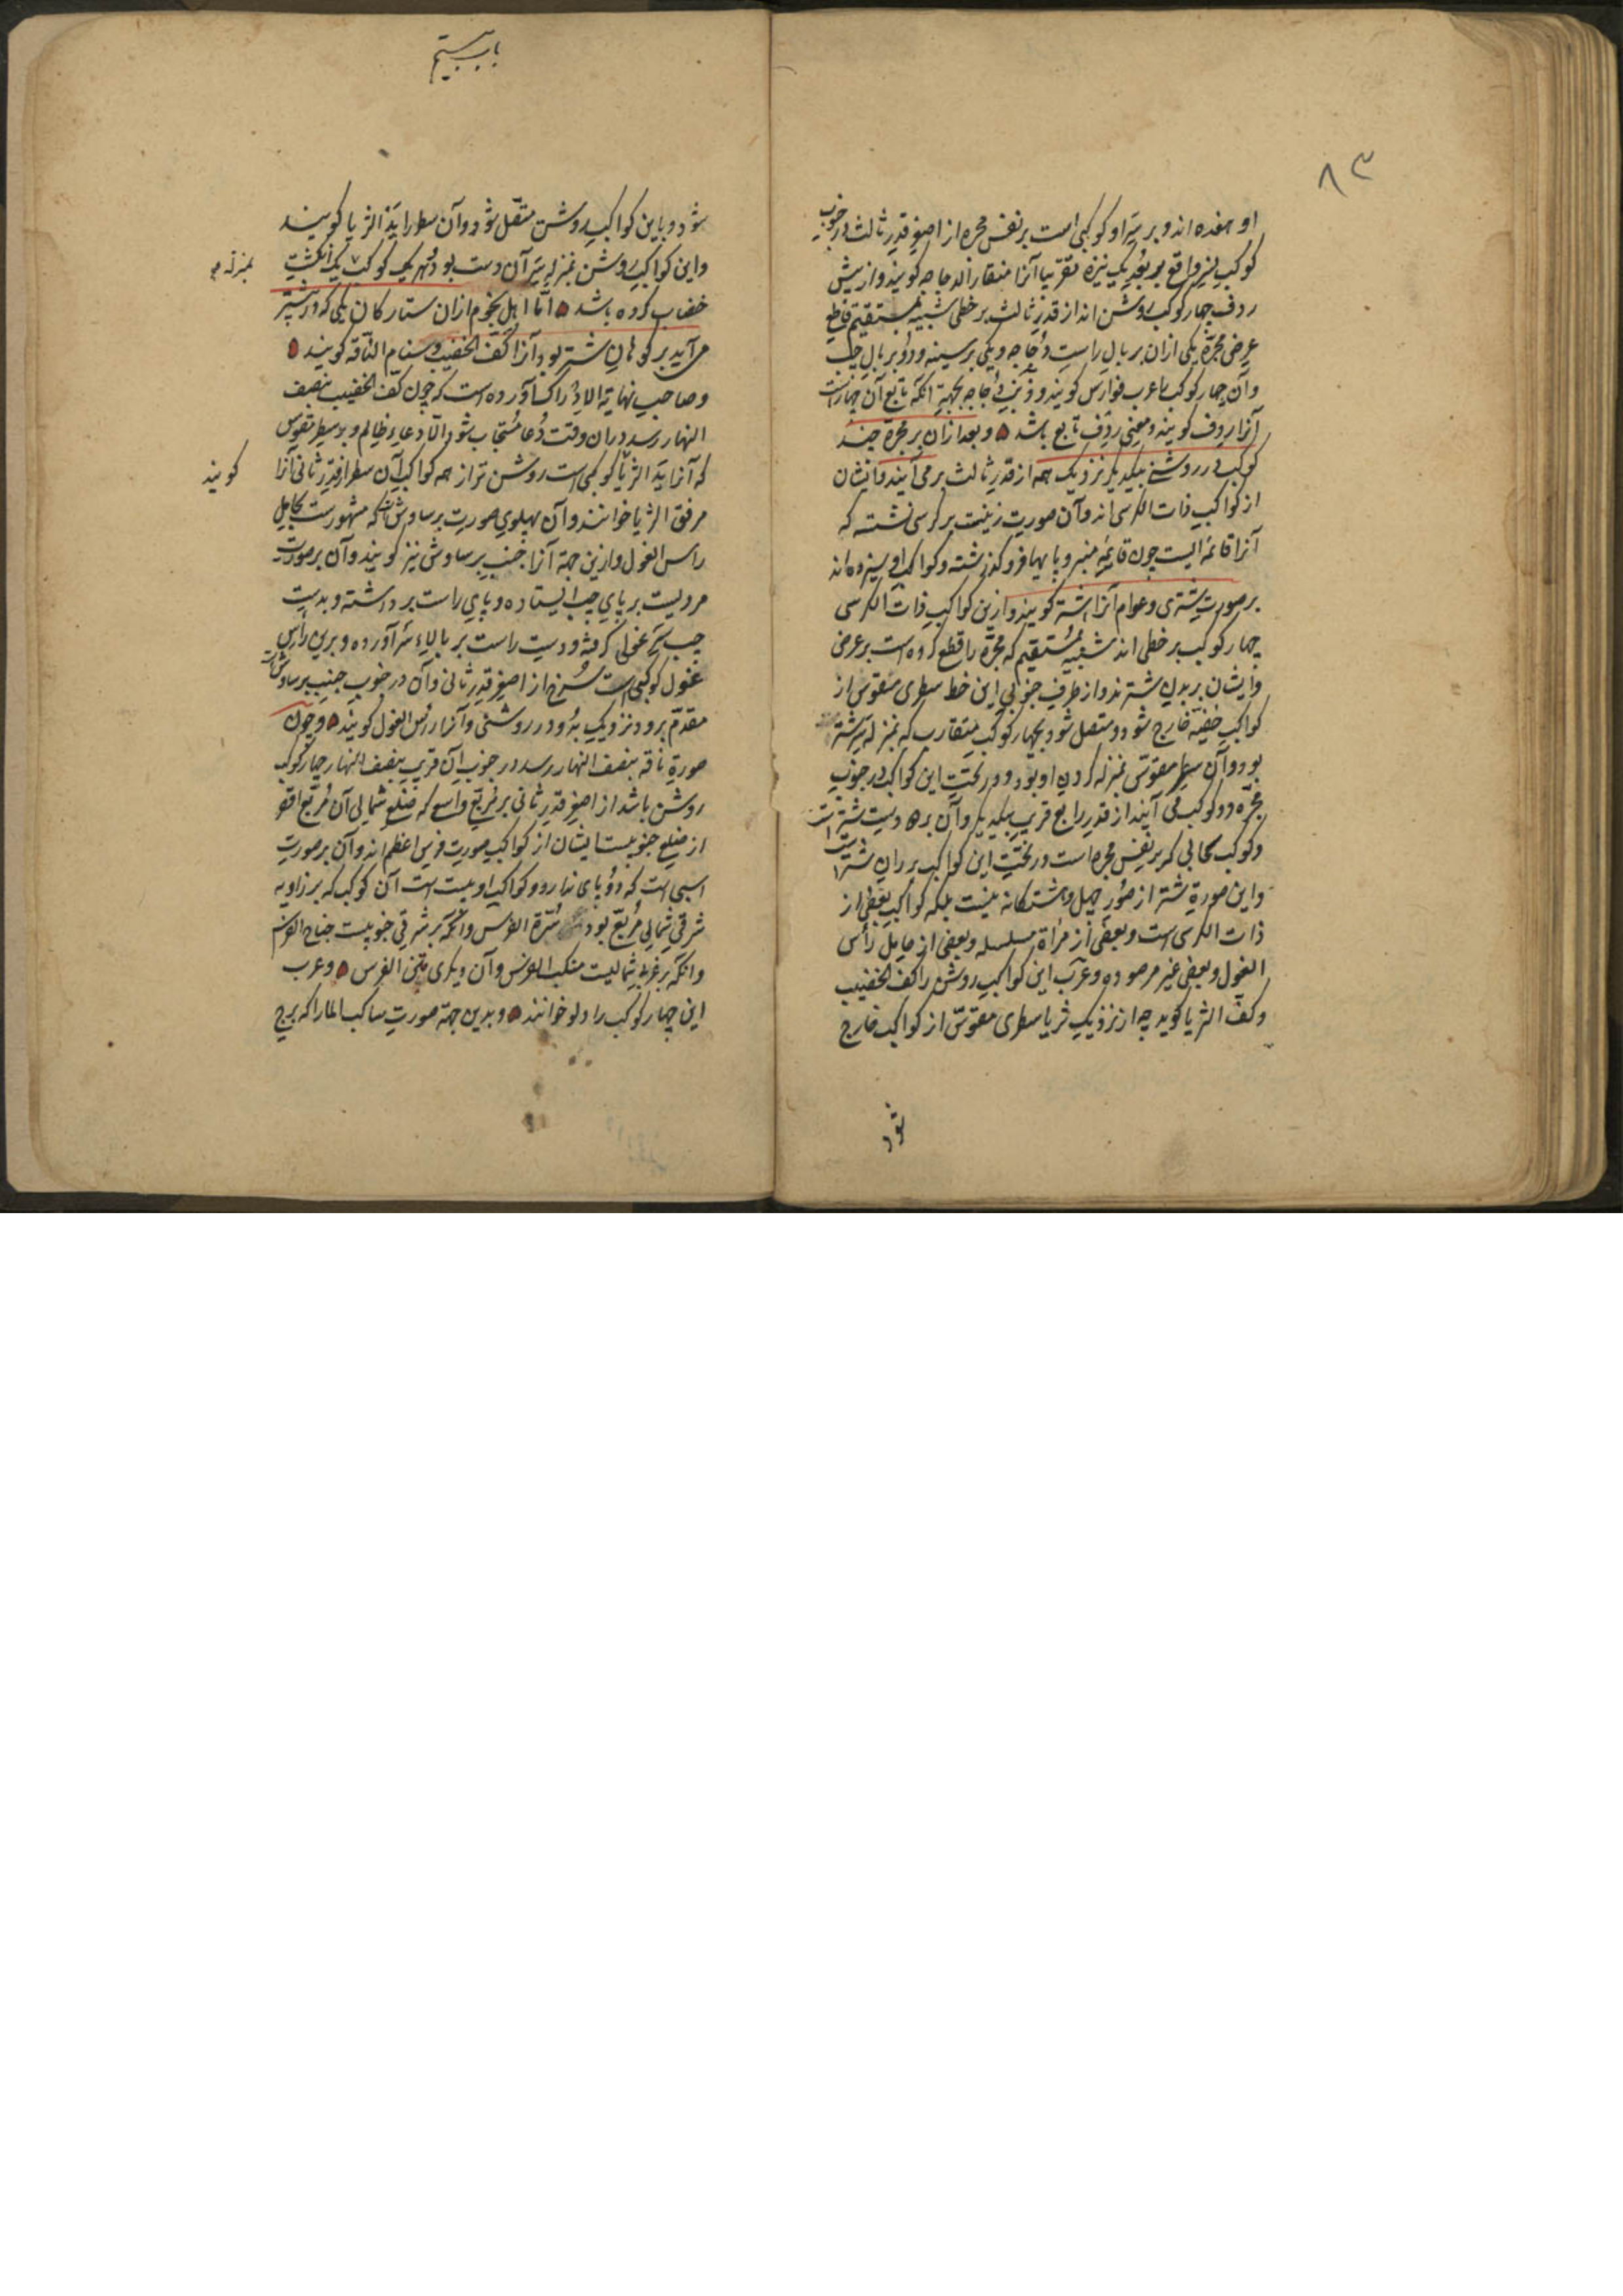 ۸۳
او هفده اند و بر سر او کوکبی است بر نفس مجره از اصغر قدر ثالث در جنوب
کوکب نسر واقع ببعد یک نیزه تقریبا آنرا منقار الدجاجه گویند و از پیش
ردف چهار کوکب روشن اند از قدر ثالث بر خطی شبیه بمستقیم قاطع
عرض مجرّه یکی ازان بر بال راست دُجاجه و یکی بر سینه و دو بر بال چپ
و آن چهار کوکب را عرب فوارس گویند و ذنب دُجاجه بجهة آنکه تابع آن چهار است
آنرا ردف گویند و معنی ردِف تابع باشد و بعد ازان بر مجرّه چند
کوکب در روشنی بیکدیگر نزدیک همه از قدر ثالث بر می آیند و ایشان
از کواکب ذات الکرسی اند و آن صورت زنیست بر کرسی نشسته که
آنرا قائمه ایست چون قایمه منبر و پایها فرو گذشته و کواکب او سیزده اند
بر صورت شتری و عوام آنرا اشتر گویند و ازین کواکب ذات الکرسی
چهار کوکب بر خطی اند شبیه بمستقیم که مجرّه را قطع کرده است بر عرض
و ایشان بر بدن شترند و از طرف جنوبی این خط سطری مقوس از
کواکب خفیّه خارج شود و متصل شود بچهار کوکب متقارب که بمنزله سر شتر
بود و آن سطر مقوّس بمنزله گردن او بود و در تحت این کواکب در جنوب
مجرّه دو کوکب می آیند از قدر رابع قریب بیکدیگر و آن بر دست شتر است
و کوکب سحابی که بر نفس مجره است در تحت این کواکب بر ران شتر است
و این صورة شتر از صُوَر چهل و هشتگانه نیست بلکه کواکب بعضی از
ذات الکرسی است و بعضی از مرأة مسلسله و بعضی از حامل رأس
الغول و بعضی غیر مرصوده و عرب این کواکب روشن را کف الخضیب
و کف الثریا گوید چه از نزدیک ثریا سطری مقوّس از کواکب خارج
شود
باب بیستم
شود و باین کواکب روشن متصّل شود و آن سطر را ید الثریا گویند
و این کواکب روشن بمنزله سر آن دست بود و هر یک کوکب یک انگشت
بمنزله
خضاب کرده باشد امّا اهل نجوم ازان ستارگان یکی که در پیشتر
می آید بر کوهان شتر بود آنرا کف الخضیب و سنام الناقه گویند
و صاحب نهایة الادراک آورده است که چون کفّ الخضیب بنصف
النهار رسد دران وقت دُعا مُستجاب شود الّا دعاء ظالم و بر سطر مقوس
گویند
که آنرا ید الثریا کوکبی است روشن تر از همه کواکب آن سطر از قدر ثانی آنرا
مرفق الثریا خوانند و آن بپهلوی صورت برساوش است که مشهور است بحامل
راس الغول و ازین جهة آنرا جنب برساوش نیز گویند و آن بر صورت
مردیست بر پای چپ ایستاده و پای راست برداشته و بدست
چپ سر غولی گرفته و دست راست بر بالاء سر آورده و بر این رأس
غول کوکبی است سُرخ از اصغر قدر ثانی و آن در جنوب جنب برساوش است
مقدّم برو و نزدیک بدُو در روشنی و آنرا رأس الغول گویند و چون
صورة ناقه بنصف النهار رسد در جنوب آن قریب بنصف النهار چهار کوکب
روشن باشد از اصغر قدر ثانی بر مُربّع واسع که ضلع شمالی آن مُربّع اقصر
از ضلع جنوبیست ایشان از کواکب صورت فرس اعظم اند و آن بر صورت
اسبی است که دو پای ندارد و کواکب او بیست است آن کوکب که بر زاویه
شرقی شمالی مُربّع بود سُرّة الفرس و آنکه بر شرقی جنوبیست جناح الفرس
و آنکه بر غربی شمالیست منکب الفرس و آن دیگری متن الفرس و عرب
این چهار کوکب را دلو خوانند و بدین جهة صورت ساکب الما را که برج